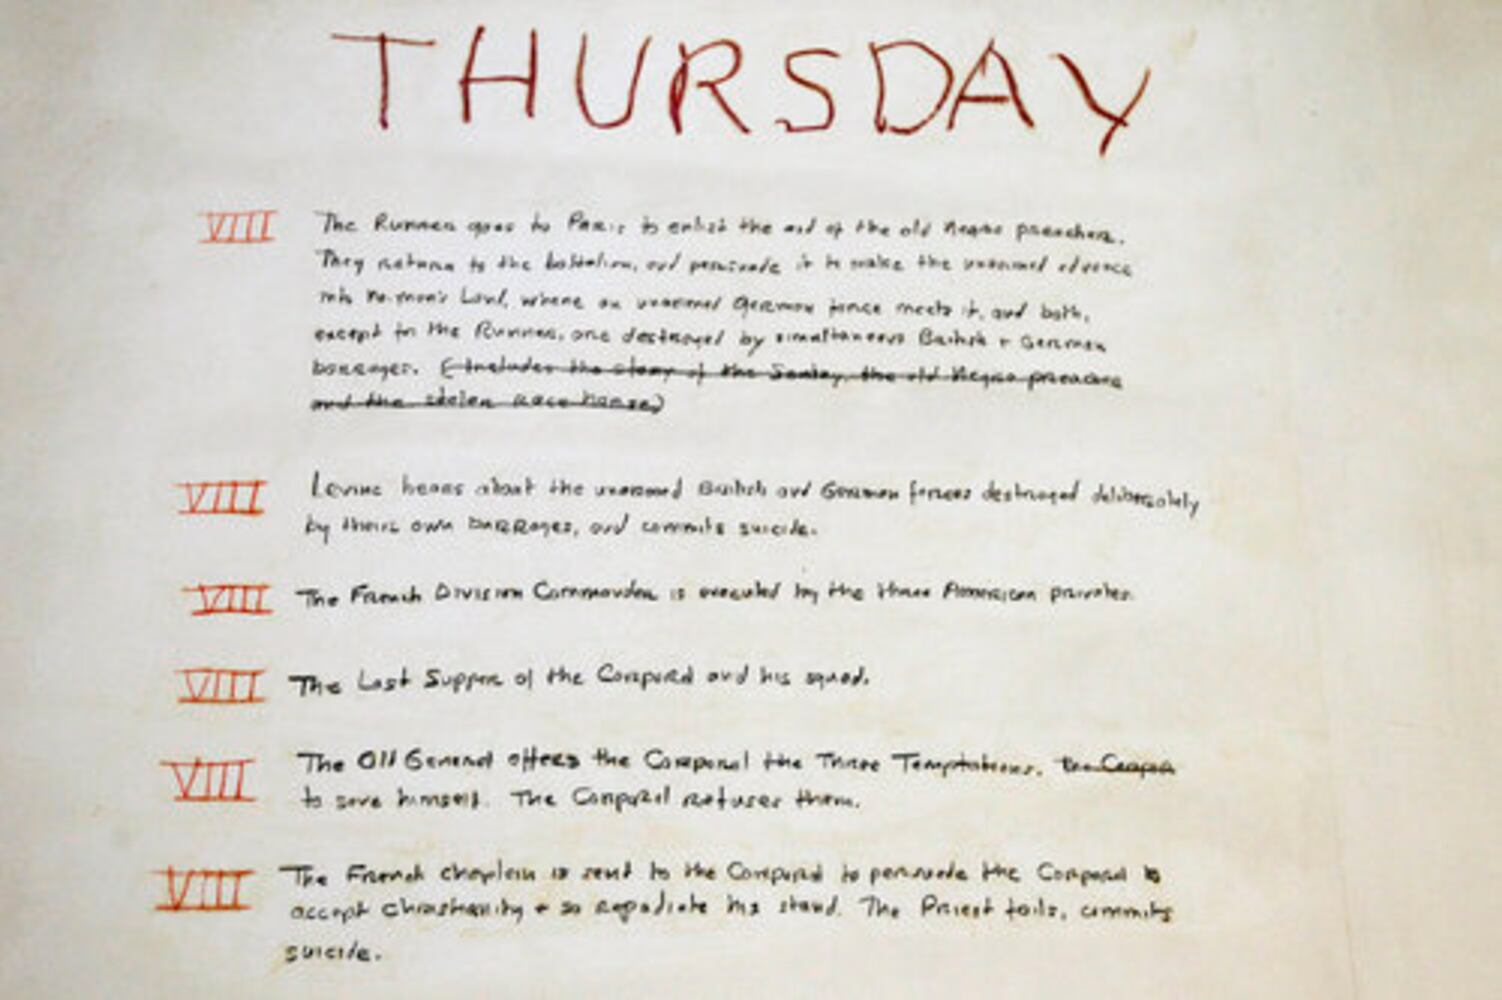 THURSDAY
VIII The Runner goes to Paris to enlist the aid of the old Negro preacher.
They return to the battalion, and persuade it to make the unarmed advance
into no-man's Land, where an unarmed German force meets it, and both,
except for the Runner, are destroyed by simultaneous British + German
barrages. (Includes the story of the Sentry, the old Negro preacher
and the stolen race horse)
VIII Levine hears about the unarmed British and German forces destroyed deliberately
by their own barrages, and commits suicide.
VIII The French Division Commander is executed by the three American privates.
VIII The Last Supper of the Corporal and his squad.
VIII The Old General offers the Corporal the Three Temptations. The Corpor
to save himself. The Corporal refuses them.
VIII The French chaplain is sent to the Corporal to persuade the Corporal to
accept Christianity + so repudiate his stand. The Priest fails, commits
suicide.